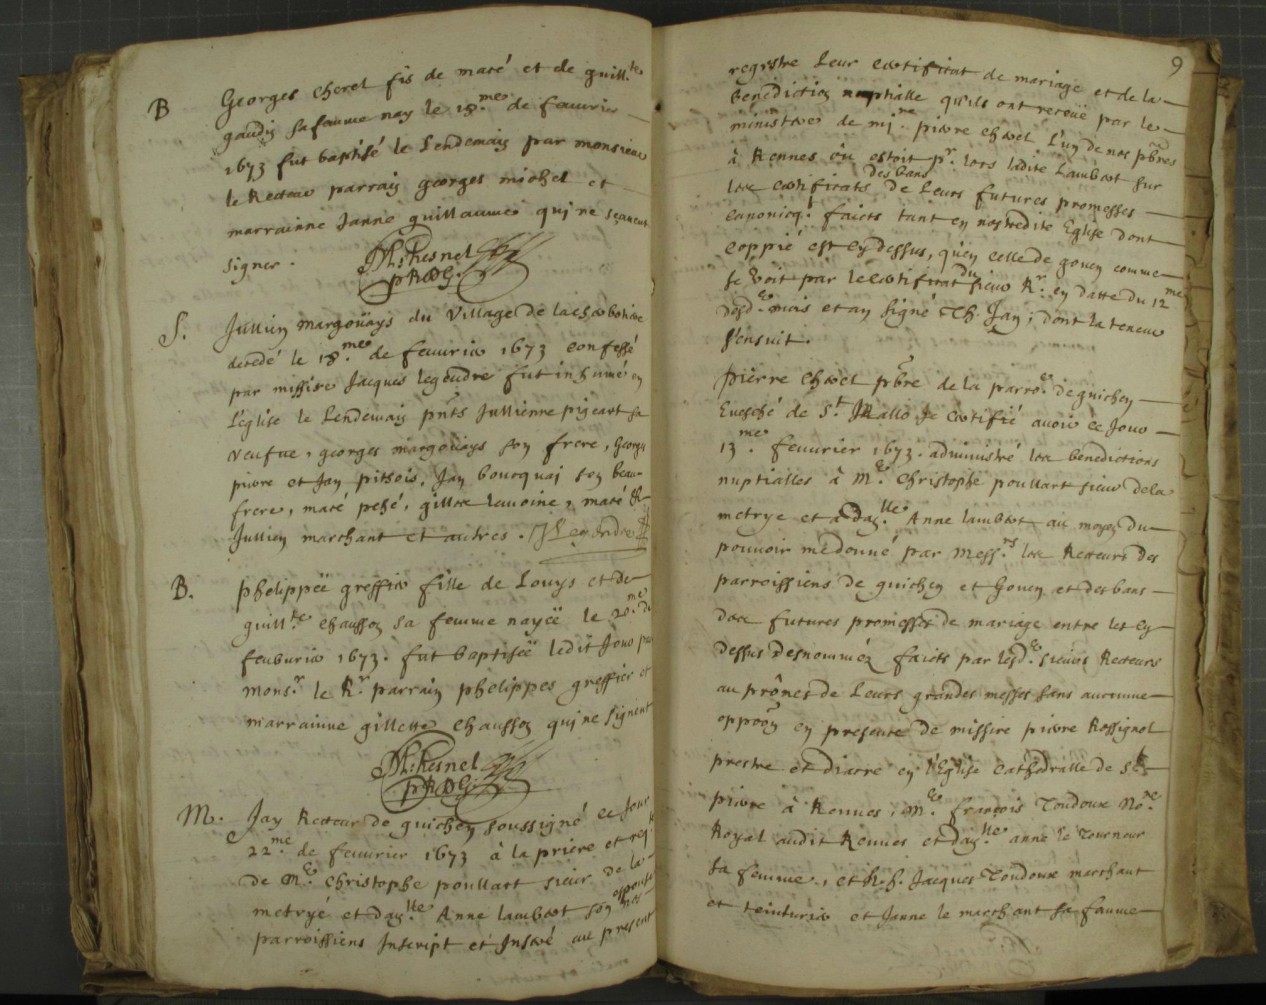 B Georges cherel fis de maté et de guill.te
gaudin sa femme nay le 18.me de feuurier
1673 fut baptisé le Lendemain par monsieur
le Recteur parrain georges michel et
marrainne Janne guillaume qui ne scauent
signer.
Th: Resnel
p R D G.
S. Jullien margoüays du village de la
decedé le 18.me de feuurier 1673 confessé
par missire Jacques legendre fut inhumé en
L'eglise le Lendemain pnts Jullienne pigeart sa
veufue, georges margoüays son frere, Georges
piure et Jan pithois, Jan bourquaj son beau-
frere, maté pehé, gilles lemoine, maté &
Jullien marchant et autres. J Legendre
B. phelippeë greffier fille de Louys et de
guill.te chausson sa femme nayeë le 20.me de
feuburier 1673. fut baptiseë ledit Jour par
mons.r le R.r parrain phelippes greffier et
marrainne gillette chausson qui ne signent
Th: Resnel
p R D G.
M. Jay Recteur de guichen soussigné ce Jour
22.me de feuurier 1673 à la priere et req.
de M.e Christophe poullart sieur de la
metryé et da.lle Anne lambert son espouse
parroissiens Inscript et Inseré au present
9
regestre Leur certificat de mariage et de la
benediction nuptialle qu'ils ont receüe par le
ministere de mi.re pierre cherel L'un de nos pbres
à Rennes ou estoit p.r lors ladite Lambert sur
les certificats des bans de Leurs futures promesses
canonicq. faicts tant en nostredite Eglise dont
coppié est cy dessus, qu'en celle de gouen comme
se voit par le certificat du sieur R.r en datte du 12.me
desd. mois et an signé Th. Jan, dont la teneur
s'ensuit.
pierre cherel pbre de la parro.e de guichen
Euesché de S.t Mallo Je certifié auoir ce Jour
13.me feuurier 1673. administré les benedictions
nuptialles à M.e Christophe poullart sieur de la
metrye et à da.lle Anne lambert au moyen du
pouvoir mé donné par mess.rs les Recteurs des
parroissiens de guichen et Gouen et des bans
des futures promesses de mariage entre les cy
dessus desnommez faicts par lesd. sieurs Recteurs
au prônes de Leurs grandes messes sans aucunne
oppoon en presence de missire pierre Rossignol
prestre et diacre en l'Eglise cathedralle de S.t
pierre à Rennes, M.e françois Toudoux No.re
Royal audit Rennes et da.lle anne le Tourneur
sa femme, et h.h. Jacques Toudoux marchant
et teinturier et Janne le marchant sa femme